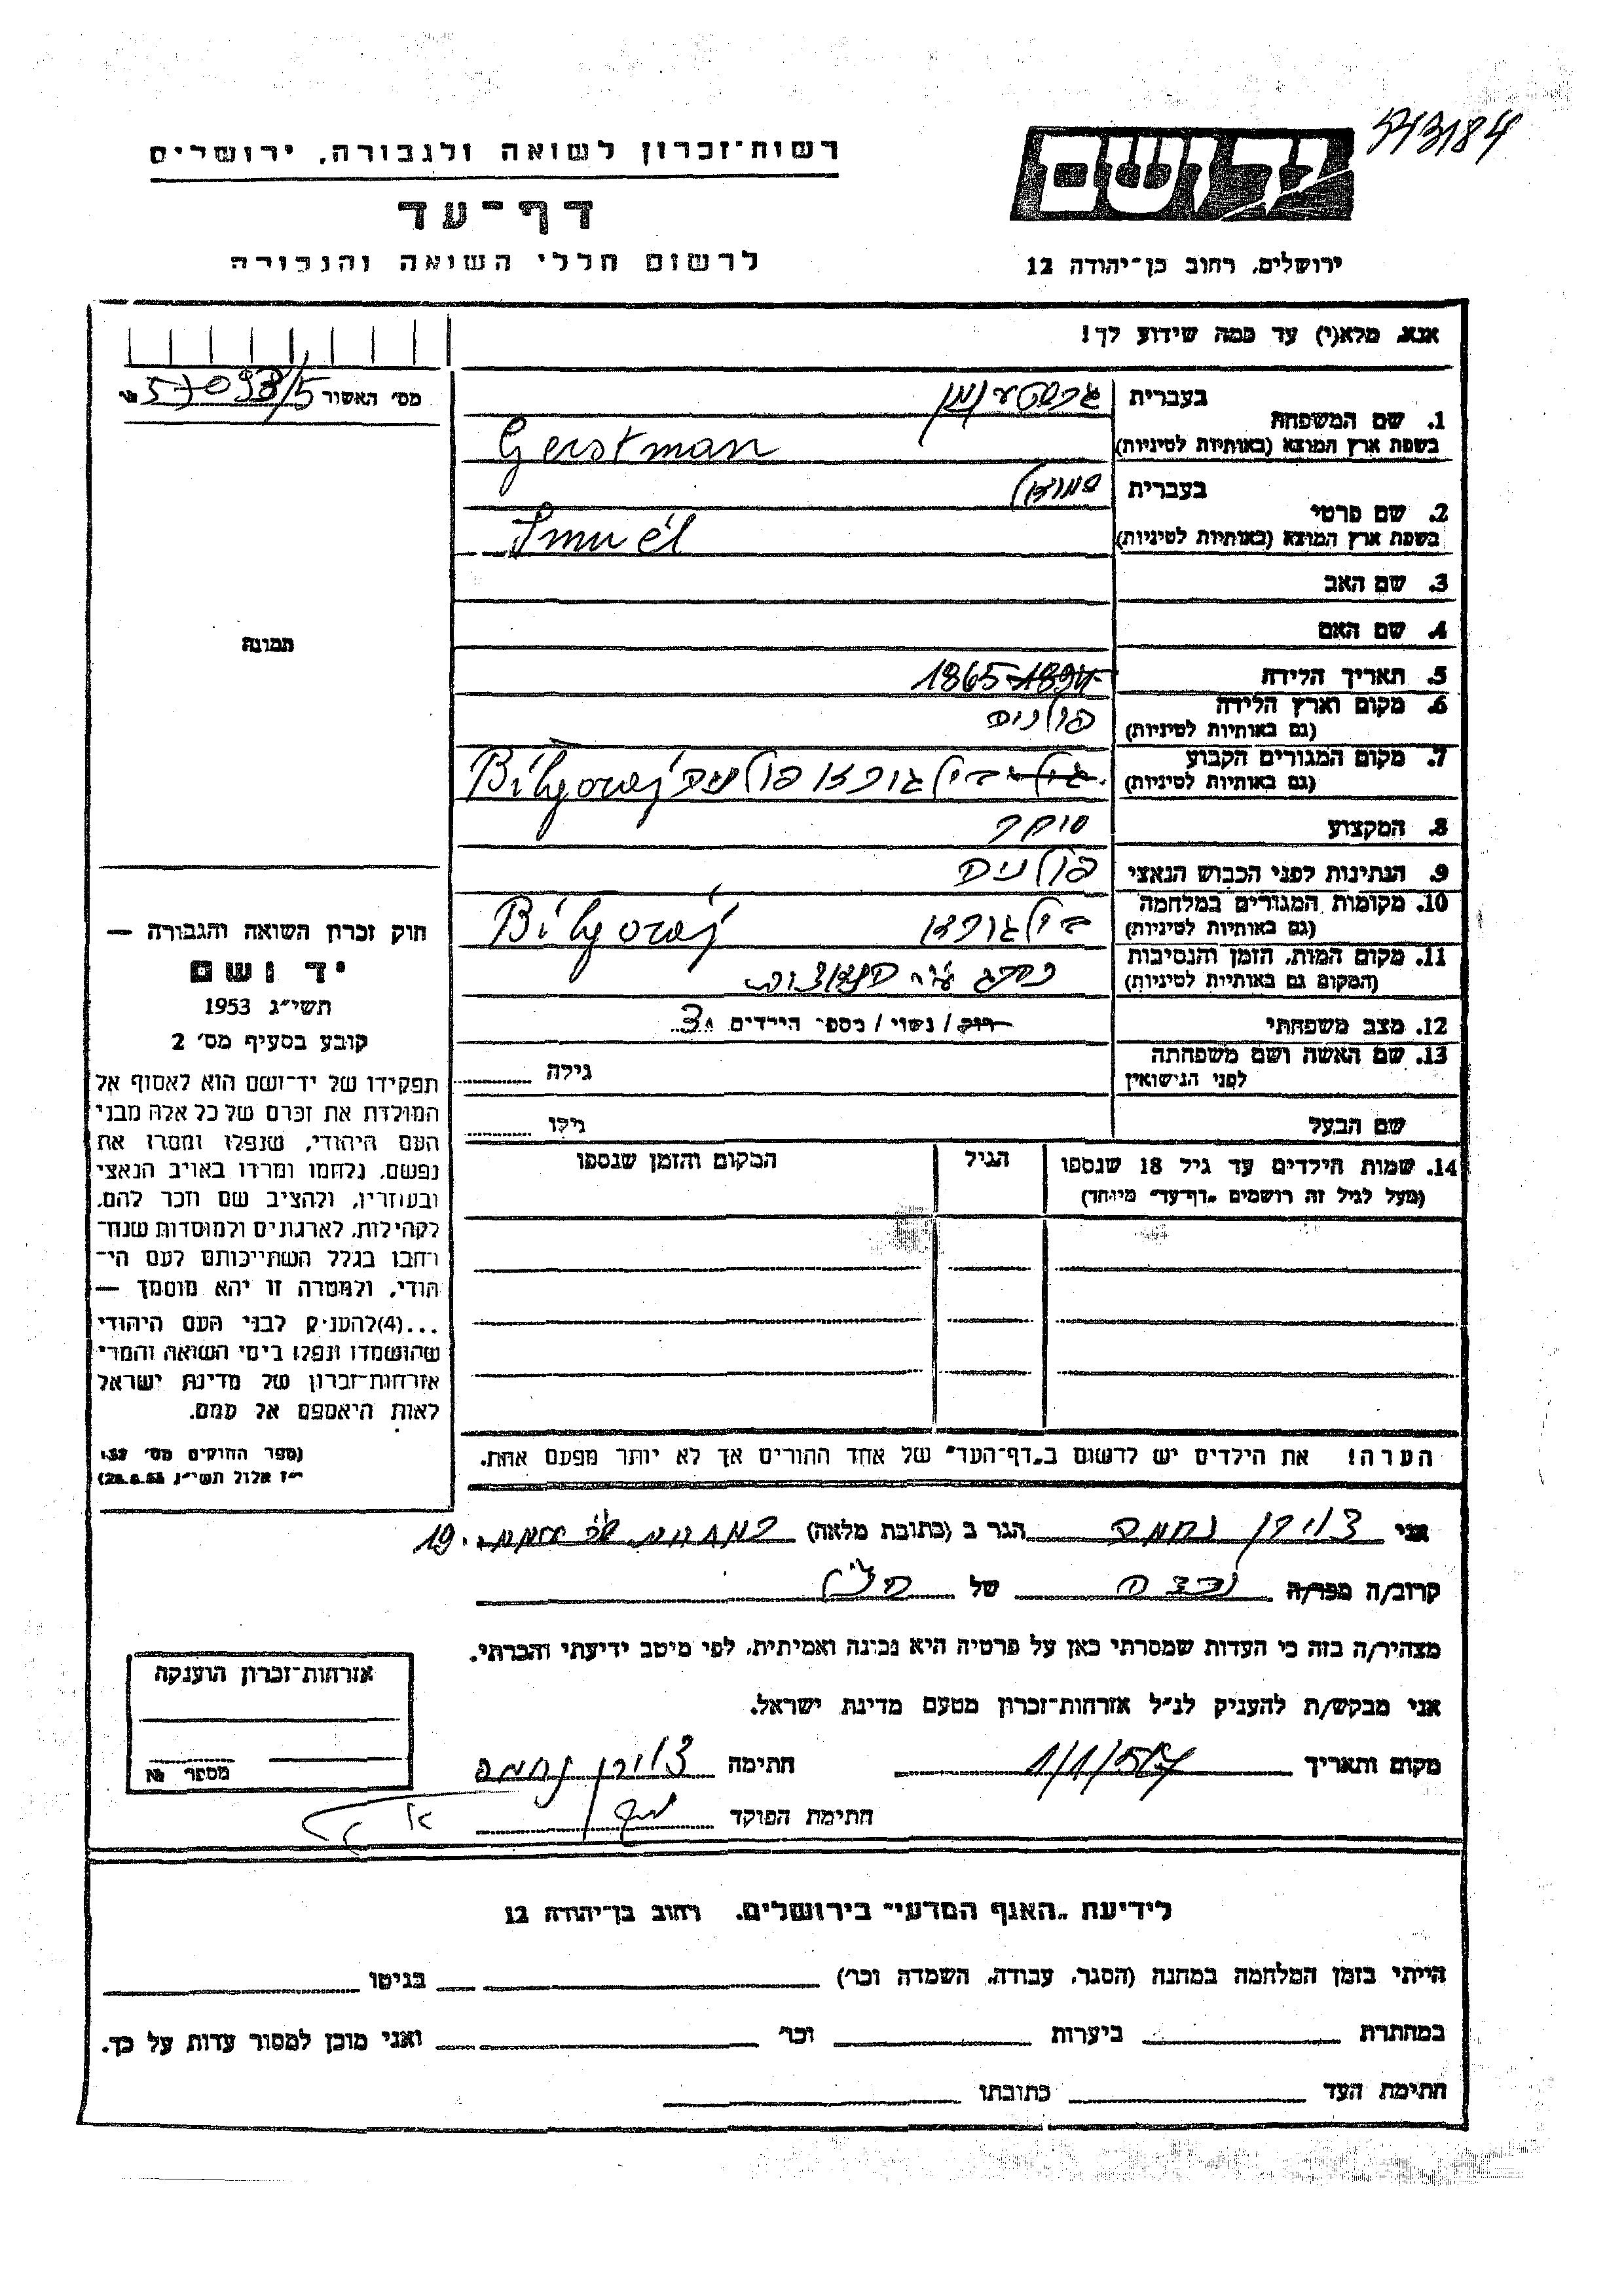 543184
יד ושם
ירושלים, רחוב בן־יהודה 12
רשות־זכרון לשואה ולגבורה, ירושלים
דף־עד
לרשום חללי השואה והגבורה
אנא, מלא(י) עד כמה שידוע לך!
מס׳ האשור
1. שם המשפחה
בעברית גרסטעמן
בשפת ארץ המוצא (באותיות לטיניות) Gerstman
2. שם פרטי
בעברית סמואל
בשפת ארץ המוצא (באותיות לטיניות) Smuel
3. שם האב
4. שם האם
5. תאריך הלידה 1865
6. מקום וארץ הלידה פולניה
(גם באותיות לטיניות)
7. מקום המגורים הקבוע בילגוראי פולניה Bilgoraj
(גם באותיות לטיניות)
8. המקצוע סוחר
9. הנתינות לפני הכבוש הנאצי פולניה
10. מקומות המגורים במלחמה בילגוראי Bilgoraj
(גם באותיות לטיניות)
11. מקום המות, הזמן והנסיבות נהרג
(המקום גם באותיות לטיניות)
12. מצב משפחתי רווק / נשוי / מספר הילדים 3
13. שם האשה ושם משפחתה גילה
לפני הנישואין
שם הבעל גילו
14. שמות הילדים עד גיל 18 שנספו הגיל המקום והזמן שנספו
(מעל לגיל זה רושמים „דף־עד״ מיוחד)
הערה! את הילדים יש לרשום ב„דף־העד״ של אחד ההורים אך לא יותר מפעם אחת.
תמונה
חוק זכרון השואה והגבורה —
יד ושם
תשי״ג 1953
קובע בסעיף מס׳ 2
תפקידו של יד־ושם הוא לאסוף אל
המולדת את זכרם של כל אלה מבני
העם היהודי, שנפלו ומסרו את
נפשם, נלחמו ומרדו באויב הנאצי
ובעוזריו, ולהציב שם וזכר להם,
לקהילות, לארגונים ולמוסדות שנח־
רבו בגלל השתייכותם לעם הי־
הודי, ולמטרה זו יהא מוסמך —
...(4)להעניק לבני העם היהודי
שהושמדו ונפלו בימי השואה והמרי
אזרחות־זכרון של מדינת ישראל
לאות היאספם אל עמם.
(ספר החוקים מס׳ 132,
י״ז אלול תשי״ג 28.8.53)
אני נחמה הגר ב (כתובת מלאה) 19
קרוב/ה מכר/ה נכדה של
מצהיר/ה בזה כי העדות שמסרתי כאן על פרטיה היא נכונה ואמיתית, לפי מיטב ידיעתי והכרתי.
אני מבקש/ת להעניק לנ״ל אזרחות־זכרון מטעם מדינת ישראל.
מקום ותאריך חתימה נחמה
חתימת הפוקד
אזרחות־זכרון הוענקה
מספר №
לידיעת „האגף המדעי״ בירושלים, רחוב בן־יהודה 12
הייתי בזמן המלחמה במחנה (הסגר, עבודה, השמדה וכר׳) בגיטו
במחתרת ביערות וכר׳ ואני מוכן למסור עדות על כך.
חתימת העד כתובתו